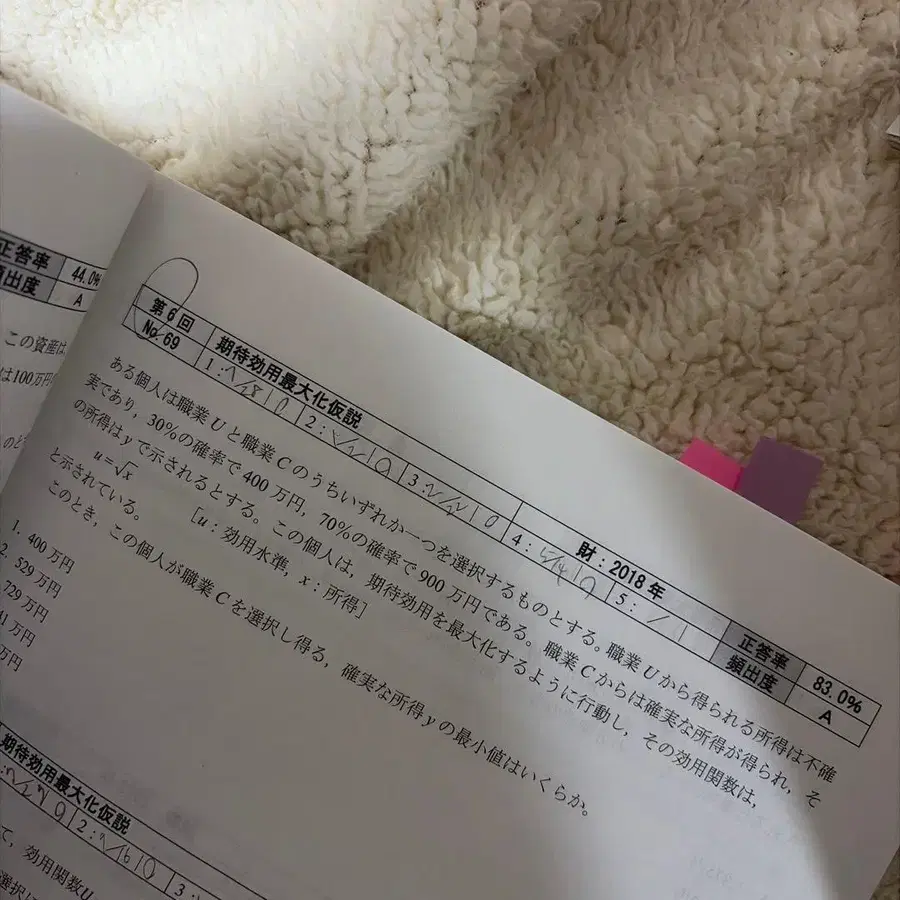 正答率 44.0%
頻出度 A
この資産は、
は100万円
のと
第6回 期待効用最大化仮説 財：2018年 正答率 83.0%
No.69 1： 2： 3： 4： 5： 頻出度 A
ある個人は職業Uと職業Cのうちいずれか一つを選択するものとする。職業Uから得られる所得は不確
実であり，30%の確率で400万円，70%の確率で900万円である。職業Cからは確実な所得が得られ，そ
の所得はyで示されるとする。この個人は，期待効用を最大化するように行動し，その効用関数は，
u=√x [u：効用水準，x：所得]
と示されている。
このとき，この個人が職業Cを選択し得る，確実な所得yの最小値はいくらか。
1. 400万円
2. 529万円
729万円
1万円
万円
期待効用最大化仮説
2： 3：
て，効用関数U
選択に